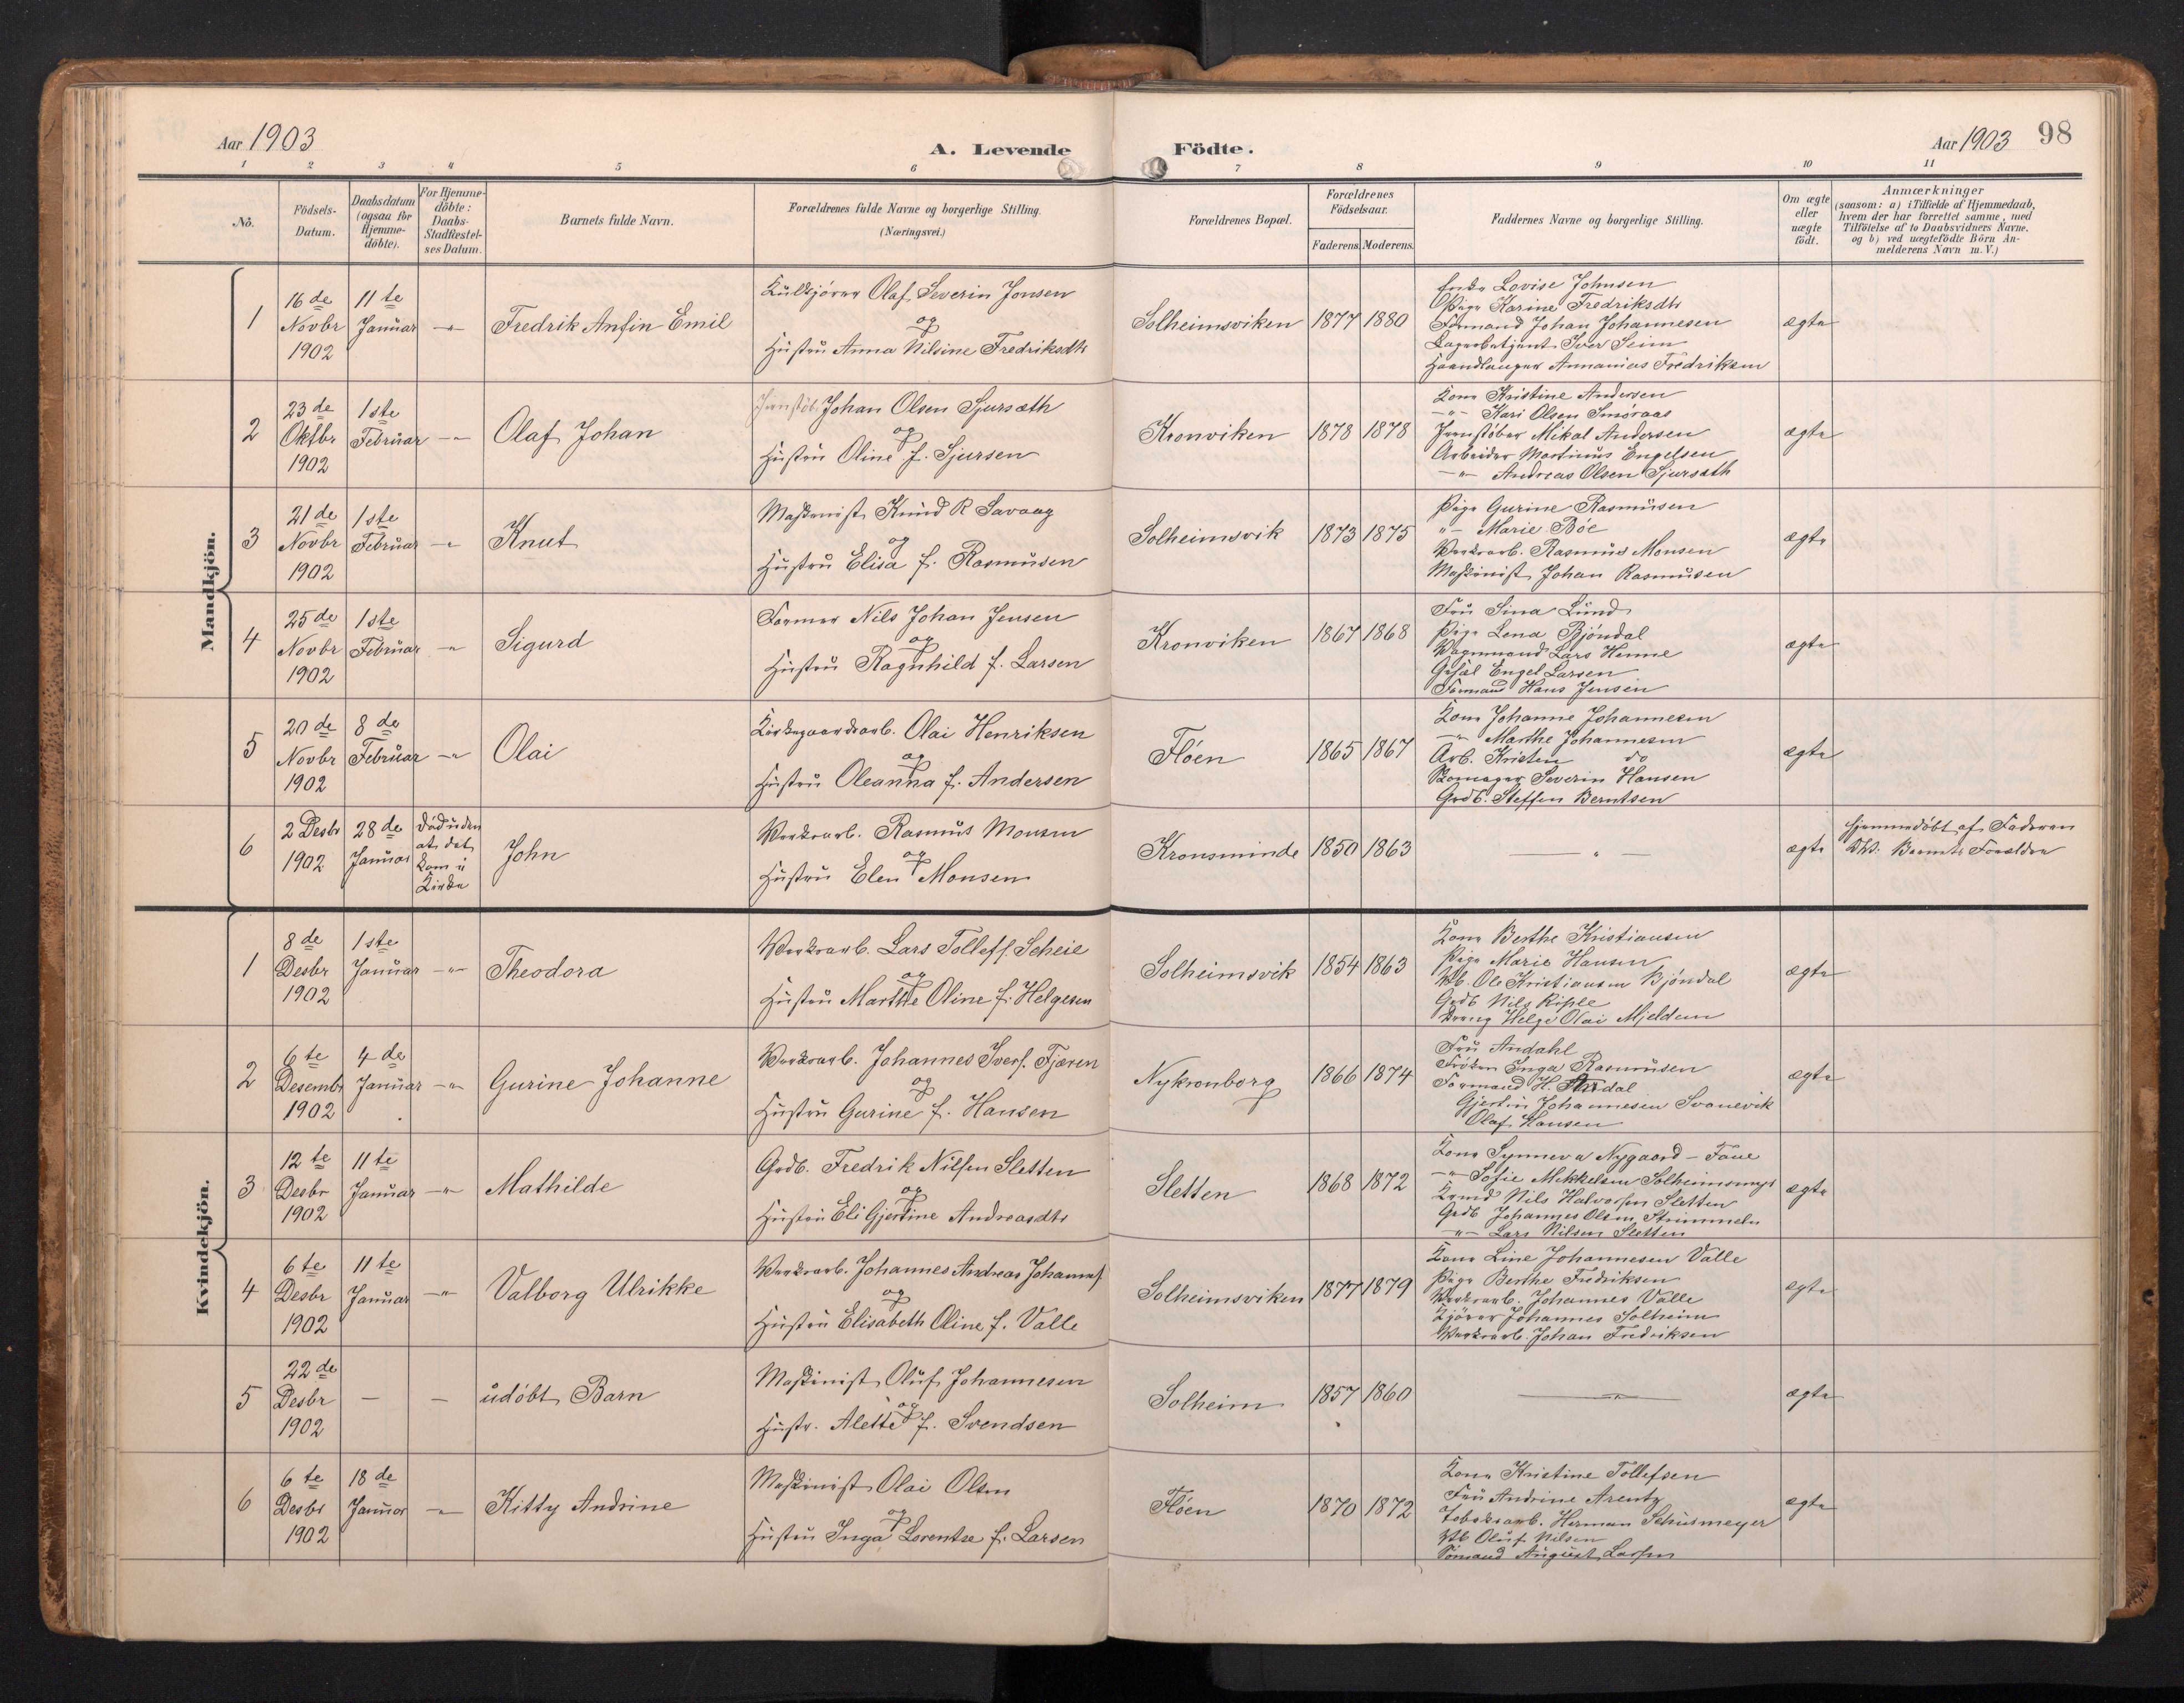 Aar 1903
A. Levende Födte.
Aar 1903 98
1 2 3 4 5 6 7 8 9 10 11
No.
Födsels-Datum.
Daabsdatum (ogsaa for Hjemme-döbte).
For Hjemme-döbte: Daabs-Stadfæstel-ses Datum.
Barnets fulde Navn.
Forældrenes fulde Navne og borgerlige Stilling.
(Næringsvei.)
Forældrenes Bopæl.
Forældrenes Födselsaar.
Faderens. Moderens.
Faddernes Navne og borgerlige Stilling.
Om ægte eller uægte födt.
Anmærkninger
(saasom: a) i Tilfælde af Hjemmedaab, hvem der har forrettet samme, med Tilföielse af to Daabsvidners Navne. og b) ved uægtefödte Börn An-melderens Navn m.V.)
Mandkjön.
1 16 de Novbr 1902 11 te Januar -"- Fredrik Anfin Emil
Kulkjører Olaf Severin Jonsen
og
Hustru Anna Nilsine Fredriksdtr
Solheimsviken 1877 1880
Lovise Johnsen
Pige Karine Fredriksdtr
Formand Johan Johannesen
Lagerbetjent Iver Seim
Haandlanger Annanias Fredriksen
ægte
2 23 de Oktbr 1902 1ste Februar -"- Olaf Johan
Jernstöb. Johan Olsen Sjursæth
og
Hustru Oline f. Sjursen
Kronviken 1878 1878
Kone Kristine Andersen
-"- Kari Olsen Smøraas
Jernstöber Mikal Andersen
Arbeider Martinus Engelsen
-"- Andreas Olsen Sjursæth
ægte
3 21 de Novbr 1902 1ste Februar -"- Knut
Maskinist Knud R Savaag
og
Hustru Elisa f. Rasmusen
Solheimsvik 1873 1875
Pige Gurine Rasmusen
"- Marie Böe
Værksarb. Rasmus Monsen
Maskinist Johan Rasmusen
ægte
4 25 de Novbr 1902 1ste Februar -"- Sigurd
Former Nils Johan Jensen
og
Hustru Ragnhild f. Larsen
Kronviken 1867 1868
Fru Sina Lund
Pige Lena Bjöndal
Vognmand Lars Henne
Engel Larsen
Formand Hans Jensen
ægte
5 20 de Novbr 1902 8 de Februar -"- Olai
Kirkegaardsarb. Olai Henriksen
og
Hustru Oleanna f. Andersen
Flöen 1865 1867
Kone Johanne Johannesen
-"- Marthe Johannesen
Arb. Kristen do
Skomager Severin Hansen
Grdb. Steffen Berntsen
ægte
6 2 Desbr 1902 28 de Januar död uden at det kom i Kirke John
Værksarb. Rasmus Monsen
og
Hustru Elen Monsen
Kronsminde 1850 1863
— " —
ægte
Hjemmedöbt af Faderen
Barnets Forældre
Kvindekjön.
1 8 de Desbr 1902 1ste Januar -"- Theodora
Værksarb. Lars Tollefs. Scheie
og
Hustru Marthe Oline f. Helgesen
Solheimsvik 1854 1863
Kone Berthe Kristiansen
Pige Marie Hansen
Vb. Ole Kristiansen Bjöndal
Grdb Nils Riple
Dreng Helge Olai Mjeldem
ægte
2 6 te Desembr 1902 4 de Januar -"- Gurine Johanne
Værksarb. Johannes Ivers. Fjæren
og
Hustru Gurine f. Hansen
Nykronborg 1866 1874
Fru Andahl
Fröken Inga Rasmusen
Formand H. Andal
Gjertin Johannesen Svanevik
Olaf Hansen
ægte
3 12 te Desbr 1902 11 te Januar -"- Mathilde
Grdb. Fredrik Nilsen Sletten
og
Hustru Eli Gjertine Andreasdtr
Sletten 1868 1872
Kone Synneva Nygaard-Fane
-"- Sofie Mikkelsen Solheimsmyr
Nils Halvorsen Sletten
Grdb Johannes Olsen
"- Lars Nilsen Sletten
ægte
4 6 te Desbr 1902 11 te Januar -"- Valborg Ulrikke
Værksarb. Johannes Andreas Johannes.
og
Hustru Elisabeth Oline f. Valle
Solheimsviken 1877 1879
Kone Line Johannesen Valle
Pige Berthe Fredriksen
Værksarb. Johannes Valle
Kjörer Johannes Solheim
Værksarb. Johan Fredriksen
ægte
5 22 de Desbr 1902 — — udöbt Barn
Maskinist Oluf Johannesen
og
Hustr. Alette f. Svendsen
Solheim 1857 1860
— " —
ægte
6 6 te Desbr 1902 18 de Januar -"- Kitty Andrine
Maskinist Olai Olsen
og
Hustru Inga Lorentse f. Larsen
Flöen 1870 1872
Kone Kristine Tollefsen
Fru Andrine Arentz
Tobaksarb. Herman Schusmeyer
Vb Oluf Nilsen
Sömand August Larsen
ægte